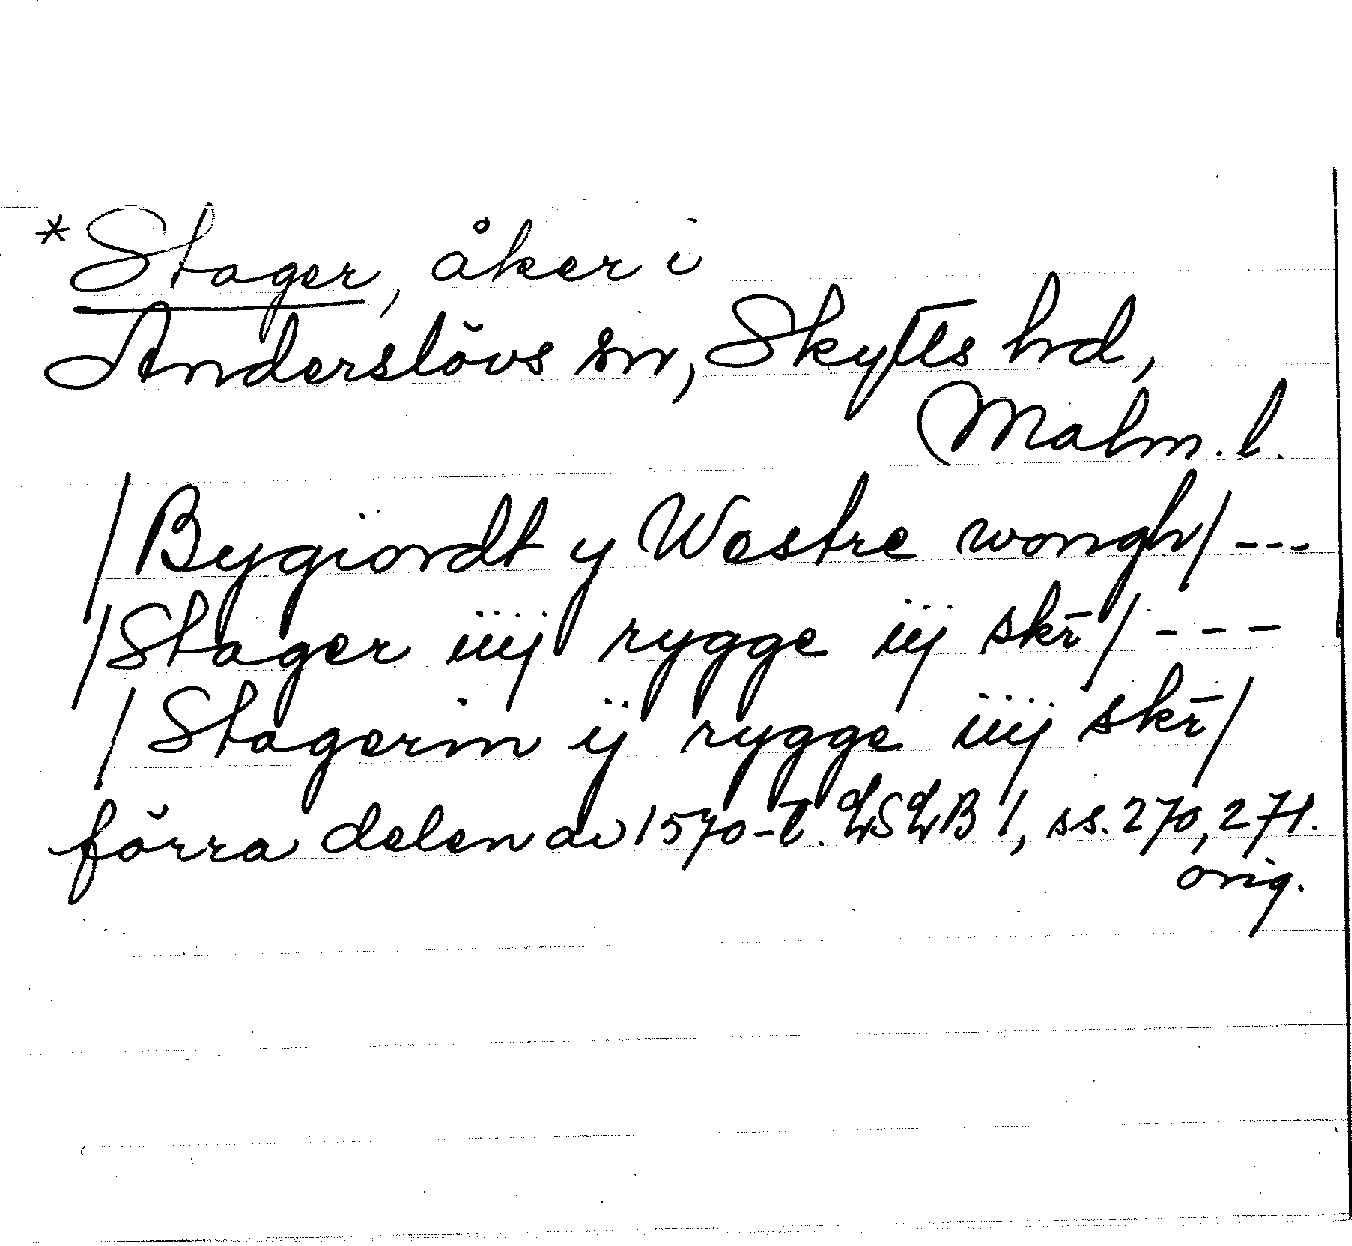 *Stager, åker i
Anderslövs sn, Skytts hd,
Malm. l.
/Bygiordt y Westre wongh/---
/Stager iiij rygge iij skr̄/---
/Stagerin ij rygge iiij skr̄/
förra delen av 1570-t. LSLB 1, ss. 270, 271.
orig.